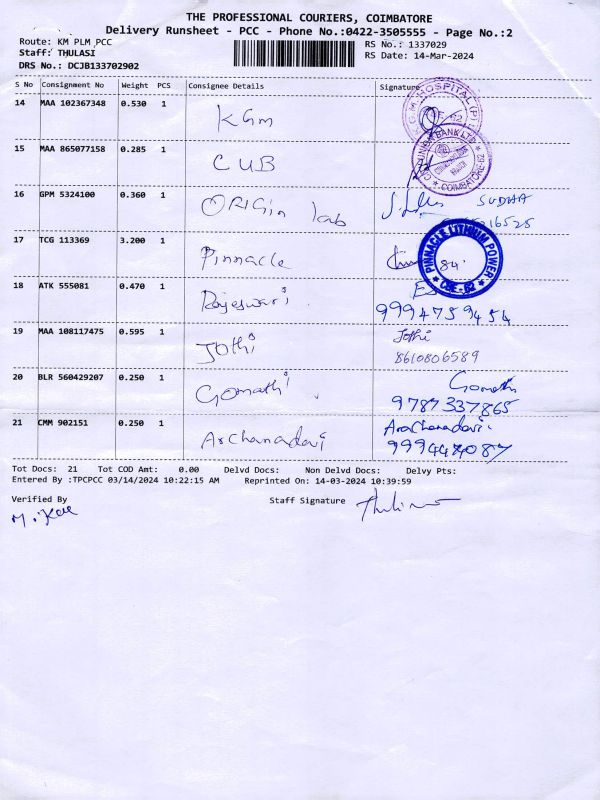 THE PROFESSIONAL COURIERS, COIMBATORE
Delivery Runsheet - PCC - Phone No.:0422-3505555 - Page No.:2
Route: KM PLM,PCC
RS No.: 1337029
Staff: THULASI
RS Date: 14-Mar-2024
DRS No.: DCJB133702902
S No Consignment No Weight PCS Consignee Details Signature
14 MAA 102367348 0.530 1 KGM
K.G.M. HOSPITAL (P)
15 MAA 865077158 0.285 1 CUB
UNION BANK LTD
COIMBATORE-62
16 GPM 5324100 0.360 1 ORIGin lab SUDHA
17 TCG 113369 3.200 1 Pinnacle
PINNACLE LITHIUM POWER
CBE-62
18 ATK 555081 0.470 1 Rajeswari
9994759454
19 MAA 108117475 0.595 1 Jothi Jothi
8610806589
20 BLR 560429207 0.250 1 Gomathi Gomathi
9787337865
21 CMM 902151 0.250 1 Archanadavi Archanadavi
Tot Docs: 21 Tot COD Amt: 0.00 Delvd Docs: Non Delvd Docs: Delvy Pts:
Entered By :TPCPCC 03/14/2024 10:22:15 AM Reprinted On: 14-03-2024 10:39:59
Verified By Staff Signature